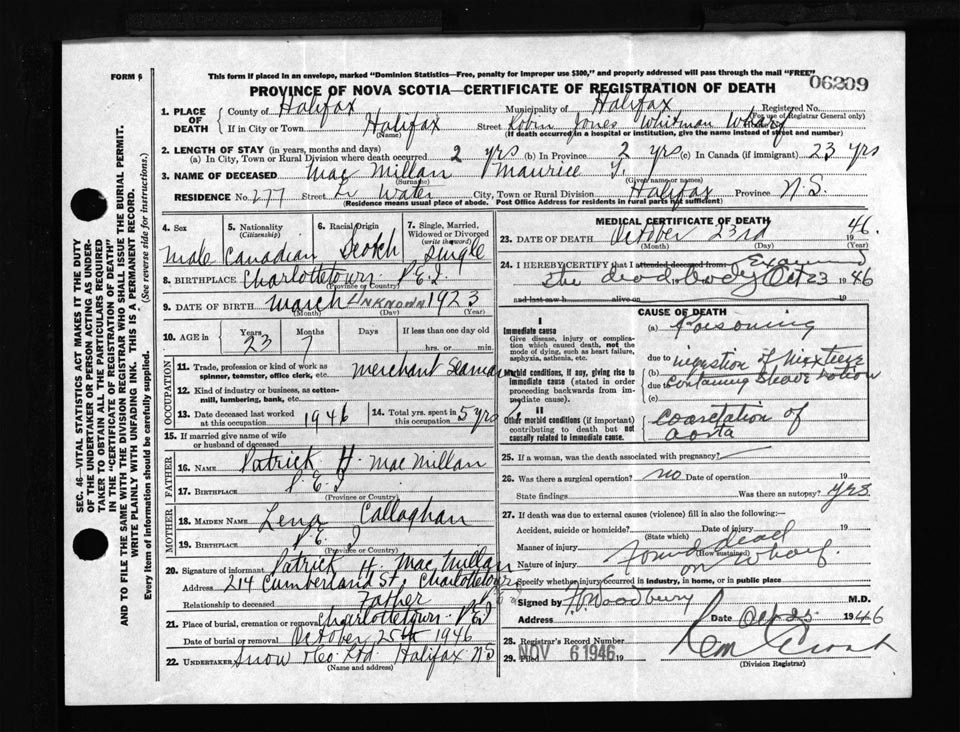 FORM 6
This form if placed in an envelope, marked "Dominion Statistics—Free, penalty for improper use $300," and properly addressed will pass through the mail "FREE"
06209
PROVINCE OF NOVA SCOTIA—CERTIFICATE OF REGISTRATION OF DEATH
1. PLACE OF DEATH
County of Halifax Municipality of Halifax Registered No.
(For use of Registrar General only)
If in City or Town Halifax Street Robin Jones Whitman Wharf
(Name) (If death occurred in a hospital or institution, give the name instead of street and number)
2. LENGTH OF STAY (in years, months and days)
(a) In City, Town or Rural Division where death occurred 2 yrs (b) In Province 2 yrs (c) In Canada (if immigrant) 23 yrs
3. NAME OF DECEASED MacMillan Maurice
(Surname) (Given name or names)
RESIDENCE No. 277 Street Water City, Town or Rural Division Halifax Province N.S.
(Residence means usual place of abode. Post Office Address for residents in rural parts not sufficient)
4. Sex Male
5. Nationality (Citizenship) Canadian
6. Racial Origin Scotch
7. Single, Married, Widowed or Divorced (write the word) Single
8. BIRTHPLACE Charlottetown P.E.I
(Province or Country)
9. DATE OF BIRTH March UNKNOWN 1923
(Month) (Day) (Year)
10. AGE in Years 23 Months 7 Days If less than one day old hrs. or min.
OCCUPATION
11. Trade, profession or kind of work as spinner, teamster, office clerk, etc. Merchant Seaman
12. Kind of industry or business, as cotton-mill, lumbering, bank, etc.
13. Date deceased last worked at this occupation 1946
14. Total yrs. spent in this occupation 5 yrs
15. If married give name of wife or husband of deceased
FATHER
16. NAME Patrick H. MacMillan
17. BIRTHPLACE P.E.I
(Province or Country)
MOTHER
18. MAIDEN NAME Lena Callaghan
19. BIRTHPLACE P.E.I
(Province or Country)
20. Signature of informant Patrick H. MacMillan
Address 214 Cumberland St, Charlottetown
Relationship to deceased Father
21. Place of burial, cremation or removal Charlottetown P.E.I
Date of burial or removal October 25th 1946
22. UNDERTAKER Snow & Co. Ltd. Halifax N.S
(Name and address)
MEDICAL CERTIFICATE OF DEATH
23. DATE OF DEATH October 23rd 1946.
(Month) (Day) (Year)
24. I HEREBY CERTIFY that I attended deceased from Examined
the dead body Oct 23 1946
and last saw h alive on 19
CAUSE OF DEATH
I
Immediate cause
Give disease, injury or complication which caused death, not the mode of dying, such as heart failure, asphyxia, asthenia, etc.
(a) Poisoning
due to
Morbid conditions, if any, giving rise to immediate cause (stated in order proceeding backwards from immediate cause).
(b) ingestion of Mixture
due to containing Shave Lotion
(c)
II
Other morbid conditions (if important) contributing to death but not causally related to immediate cause.
Coarctation of
aorta
25. If a woman, was the death associated with pregnancy?
26. Was there a surgical operation? no Date of operation 19
State findings Was there an autopsy? Yes
27. If death was due to external causes (violence) fill in also the following:—
Accident, suicide or homicide? Date of injury 19
(State which)
Manner of injury
(How sustained)
Nature of injury Found dead on wharf.
Specify whether injury occurred in industry, in home, or in public place
Signed by H. Woodbury M.D.
Address Date Oct 25 1946
28. Registrar's Record Number
29. Filed NOV 6 1946 19
(Division Registrar)
SEC. 46—VITAL STATISTICS ACT MAKES IT THE DUTY
OF THE UNDERTAKER OR PERSON ACTING AS UNDERTAKER TO OBTAIN ALL THE PARTICULARS REQUIRED
IN THE "CERTIFICATE OF REGISTRATION OF DEATH"
AND TO FILE THE SAME WITH THE DIVISION REGISTRAR WHO SHALL ISSUE THE BURIAL PERMIT.
WRITE PLAINLY WITH UNFADING INK. THIS IS A PERMANENT RECORD.
Every item of information should be carefully supplied. (See reverse side for instructions.)